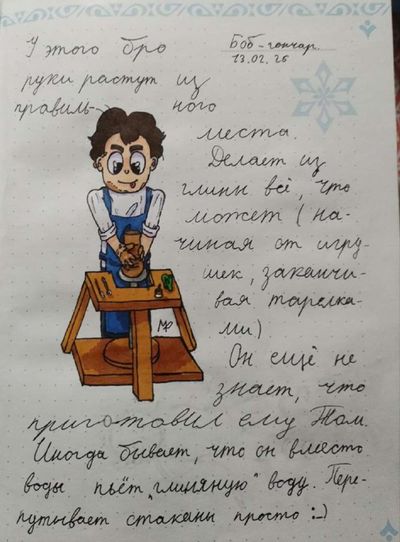 У этого бро
Боб-гончар.
13.02.26
руки растут из
правиль- ного
места.
Делает из
глины всё, что
может (на-
чиная от игру-
шек, заканчи-
вая тарелка-
ми)
Он ещё не
знает, что
приготовил ему Том.
Иногда бывает, что он вместо
воды пьёт „глиняную" воду. Пере-
путывает стаканы просто :-)
МР